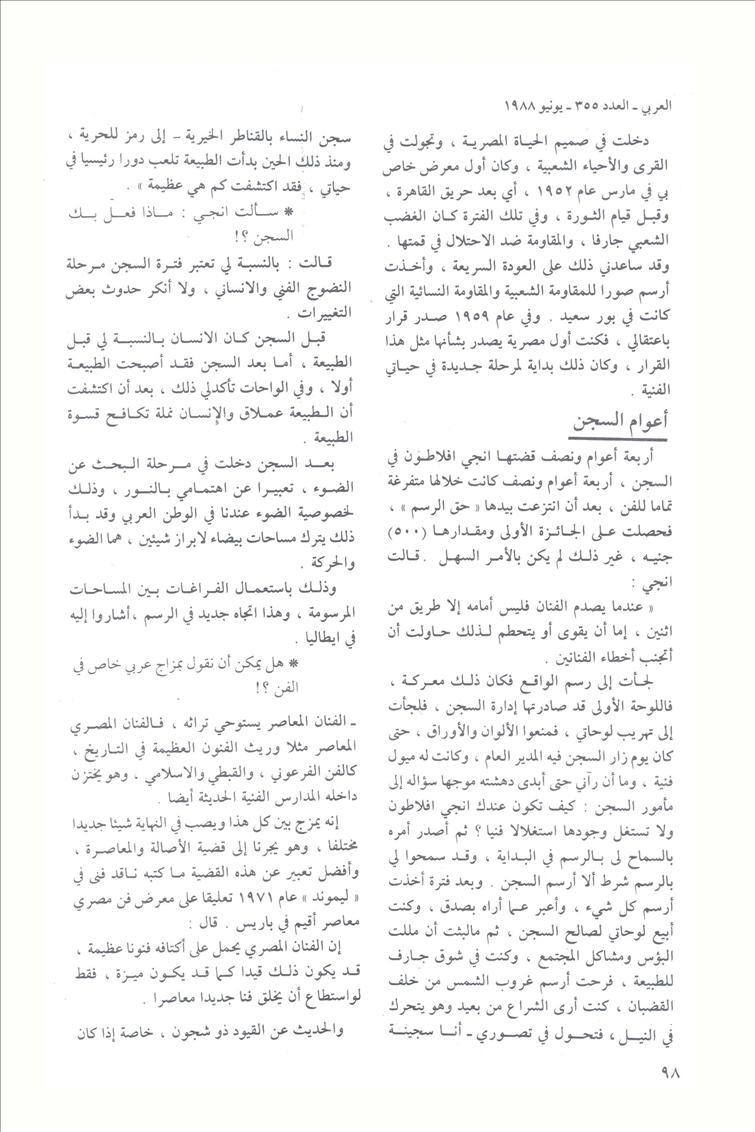 العربي ـ العدد ٣٥٥ ـ يونيو ١٩٨٨
دخلت في صميم الحياة المصرية ، وتجولت في
القرى والأحياء الشعبية ، وكان أول معرض خاص
بي في مارس عام ١٩٥٢ ، أي بعد حريق القاهرة ،
وقبل قيام الثورة ، وفي تلك الفترة كان الغضب
الشعبي جارفا ، والمقاومة ضد الاحتلال في قمتها .
وقد ساعدني ذلك على العودة السريعة ، وأخذت
أرسم صورا للمقاومة الشعبية والمقاومة النسائية التي
كانت في بور سعيد . وفي عام ١٩٥٩ صدر قرار
باعتقالي ، فكنت أول مصرية يصدر بشأنها مثل هذا
القرار ، وكان ذلك بداية لمرحلة جديدة في حياتي
الفنية .
أعوام السجن
أربعة أعوام ونصف قضتها انجي افلاطون في
السجن ، أربعة أعوام ونصف كانت خلالها متفرغة
تماما للفن ، بعد أن انتزعت بيدها « حق الرسم » ،
فحصلت على الجائزة الأولى ومقدارها (٥٠٠)
جنيه ، غير ذلك لم يكن بالأمر السهل . قالت
انجي :
« عندما يصدم الفنان فليس أمامه إلا طريق من
اثنين ، إما أن يقوى أو يتحطم لذلك حاولت أن
أتجنب أخطاء الفنانين .
لجأت إلى رسم الواقع فكان ذلك معركة ،
فاللوحة الأولى قد صادرتها إدارة السجن ، فلجأت
إلى تهريب لوحاتي ، فمنعوا الألوان والأوراق ، حتى
كان يوم زار السجن فيه المدير العام ، وكانت له ميول
فنية ، وما أن رآني حتى أبدى دهشته موجها سؤاله إلى
مأمور السجن : كيف تكون عندك انجي افلاطون
ولا تستغل وجودها استغلالا فنيا ؟ ثم أصدر أمره
بالسماح لى بالرسم في البداية ، وقد سمحوا لي
بالرسم شرط ألا أرسم السجن . وبعد فترة أخذت
أرسم كل شيء ، وأعبر عما أراه بصدق ، وكنت
أبيع لوحاتي لصالح السجن ، ثم مالبثت أن مللت
البؤس ومشاكل المجتمع ، وكنت في شوق جارف
للطبيعة ، فرحت أرسم غروب الشمس من خلف
القضبان ، كنت أرى الشراع من بعيد وهو يتحرك
في النيل ، فتحول في تصوري ـ أنا سجينة
سجن النساء بالقناطر الخيرية ـ إلى رمز للحرية ،
ومنذ ذلك الحين بدأت الطبيعة تلعب دورا رئيسيا في
حياتي ، فقد اكتشفت كم هي عظيمة » .
* سألت انجي : ماذا فعل بك
السجن ؟!
قالت : بالنسبة لي تعتبر فترة السجن مرحلة
النضوج الفني والانساني ، ولا أنكر حدوث بعض
التغييرات .
قبل السجن كان الانسان بالنسبة لي قبل
الطبيعة ، أما بعد السجن فقد أصبحت الطبيعة
أولا ، وفي الواحات تأكدلي ذلك ، بعد أن اكتشفت
أن الطبيعة عملاق والإنسان نملة تكافح قسوة
الطبيعة .
بعد السجن دخلت في مرحلة البحث عن
الضوء ، تعبيرا عن اهتمامي بالنور ، وذلك
لخصوصية الضوء عندنا في الوطن العربي وقد بدأ
ذلك يترك مساحات بيضاء لابراز شيئين ، هما الضوء
والحركة .
وذلك باستعمال الفراغات بين المساحات
المرسومة ، وهذا اتجاه جديد في الرسم ، أشاروا إليه
في ايطاليا .
* هل يمكن أن نقول بمزاج عربي خاص في
الفن ؟!
ـ الفنان المعاصر يستوحي تراثه ، فالفنان المصري
المعاصر مثلا وريث الفنون العظيمة في التاريخ ،
كالفن الفرعوني ، والقبطي والاسلامي ، وهو يختزن
داخله المدارس الفنية الحديثة أيضا .
إنه يمزج بين كل هذا ويصب في النهاية شيئا جديدا
مختلفا ، وهو يجرنا إلى قضية الأصالة والمعاصرة ،
وأفضل تعبير عن هذه القضية ما كتبه ناقد فنى في
« ليموند » عام ١٩٧١ تعليقا على معرض فن مصري
معاصر أقيم في باريس . قال :
إن الفنان المصري يحمل على أكتافه فنونا عظيمة ،
قد يكون ذلك قيدا كما قد يكون ميزة ، فقط
لواستطاع أن يخلق فنا جديدا معاصرا .
والحديث عن القيود ذو شجون ، خاصة إذا كان
٩٨